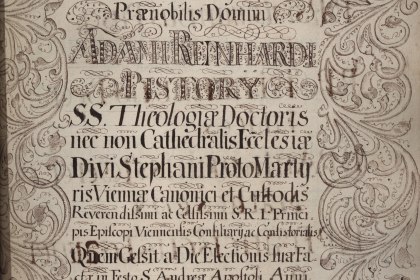 Prænobilis Domini
ADAMI REINHARDI
PISTORY
SS. Theologiæ Doctoris
nec non Cathedralis Ecclesiæ
Divi Stephani ProtoMarty
ris Viennæ Canonici et Custodis
Reverendissimi ac Celsissimi S. R. I. Princi
pis Episcopi Viennensis Consiliarij, ac Consistorialis
Quem Gessit a Die Electionis Suæ Fa
ctæ in Festo S. Andreæ Apostoli Anni